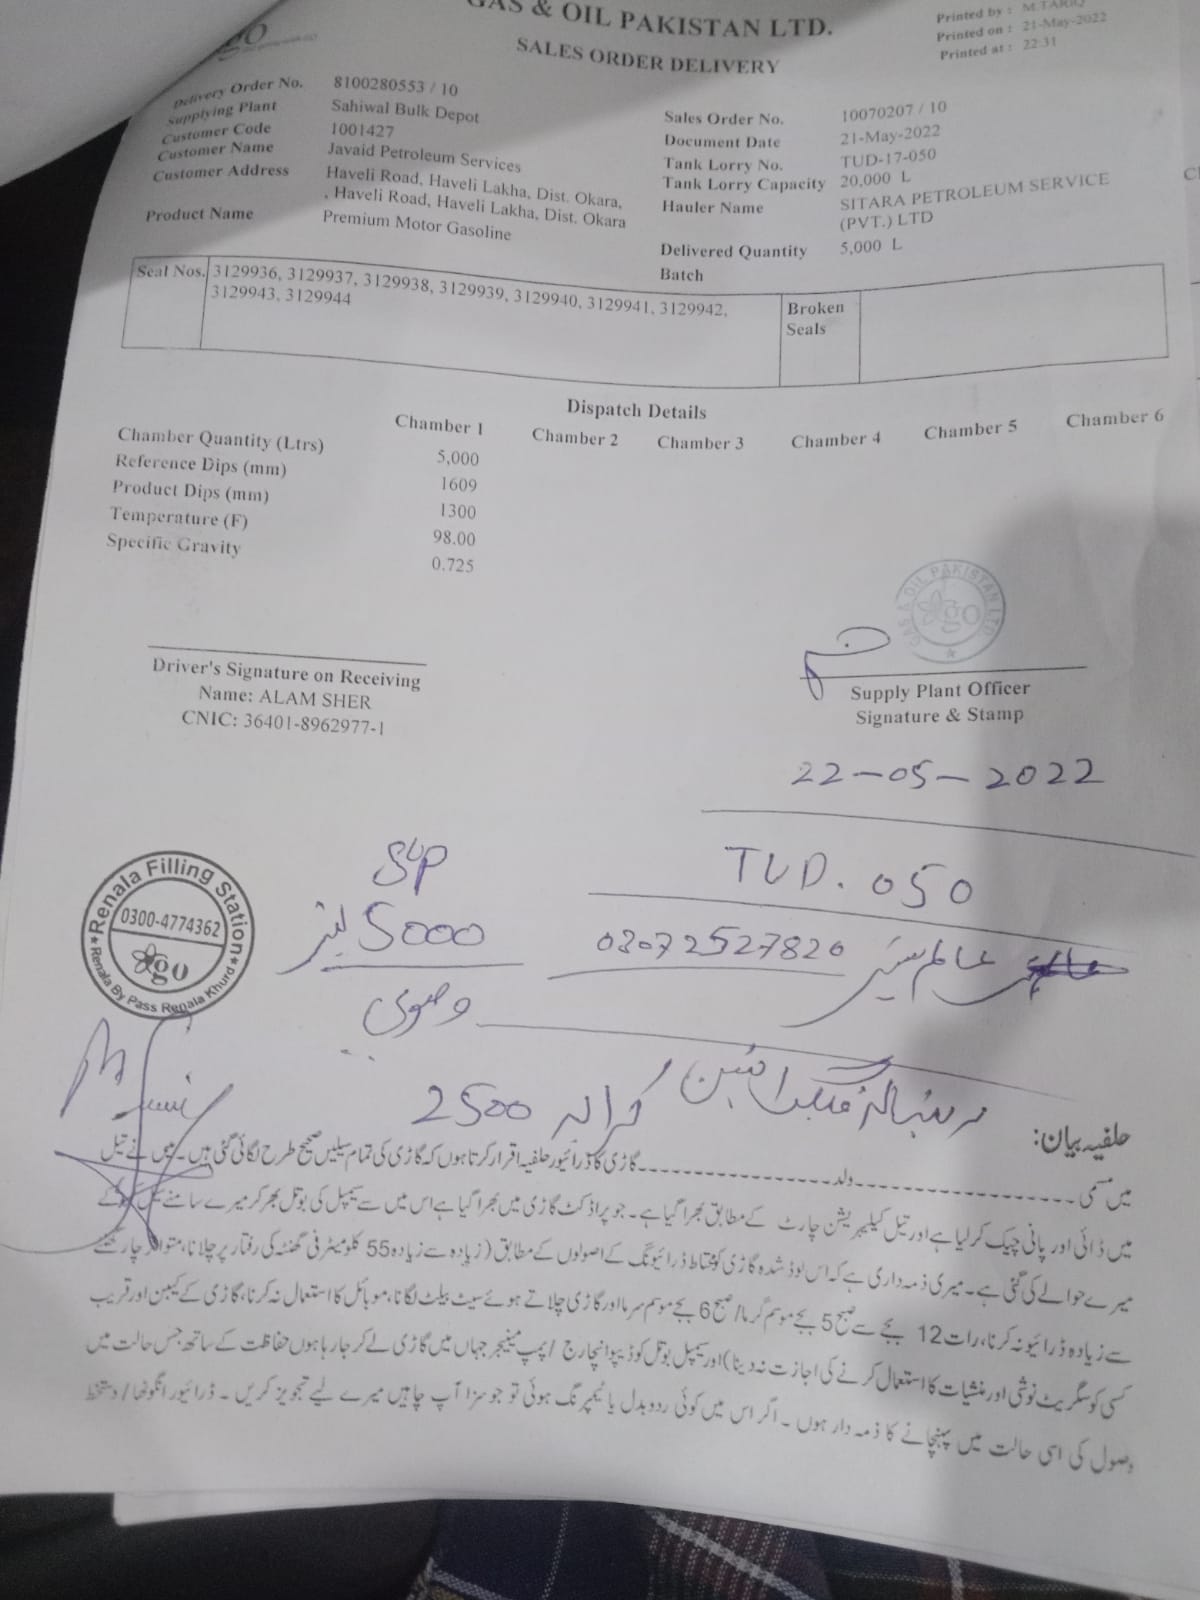 GAS & OIL PAKISTAN LTD.
SALES ORDER DELIVERY
Printed by : M.TARIQ
Printed on : 21-May-2022
Printed at : 22:31
go
Delivery Order No. 8100280553 / 10
Supplying Plant Sahiwal Bulk Depot
Customer Code 1001427
Customer Name Javaid Petroleum Services
Customer Address Haveli Road, Haveli Lakha, Dist. Okara,
, Haveli Road, Haveli Lakha, Dist. Okara
Product Name Premium Motor Gasoline
Sales Order No. 10070207 / 10
Document Date 21-May-2022
Tank Lorry No. TUD-17-050
Tank Lorry Capacity 20,000 L
Hauler Name SITARA PETROLEUM SERVICE
(PVT.) LTD
Delivered Quantity 5,000 L
Batch
Seal Nos. 3129936, 3129937, 3129938, 3129939, 3129940, 3129941, 3129942,
3129943, 3129944
Broken
Seals
Dispatch Details
Chamber 1 Chamber 2 Chamber 3 Chamber 4 Chamber 5 Chamber 6
Chamber Quantity (Ltrs) 5,000
Reference Dips (mm) 1609
Product Dips (mm) 1300
Temperature (F) 98.00
Specific Gravity 0.725
GAS & OIL PAKISTAN LTD
go
Driver's Signature on Receiving
Name: ALAM SHER
CNIC: 36401-8962977-1
Supply Plant Officer
Signature & Stamp
22-05-2022
TUD. 050
SUP
5000 لیٹر
03072527820
عالم شیر
وصولی
Renala Filling Station
0300-4774362
go
Renala By Pass Renala Khurd
کرایہ 2500
حلفیہ بیان:
میں مسمی ــــــــ ولد ــــــــ گاڑی کا ڈرائیور حلفیہ اقرار کرتا ہوں کہ گاڑی کی تمام سیلیں صحیح طرح لگائی گئی ہیں۔ میں نے تیل
میں ڈائی اور پانی چیک کر لیا ہے اور تیل کیلیبریشن چارٹ کے مطابق بھرا گیا ہے۔ جو پراڈکٹ گاڑی میں بھرا گیا ہے اس میں سے سیمپل کی بوتل بھر کر میرے سامنے سیل کر کے
میرے حوالے کی گئی ہے۔ میری ذمہ داری ہے کہ اس لوڈ شدہ گاڑی کو محتاط ڈرائیونگ کے اصولوں کے مطابق (زیادہ سے زیادہ 55 کلومیٹر فی گھنٹہ کی رفتار پر چلانا، متواتر چار گھنٹے
سے زیادہ ڈرائیو نہ کرنا، رات 12 بجے سے صبح 5 بجے موسم گرما/ صبح 6 بجے موسم سرما اور گاڑی چلاتے ہوئے سیٹ بیلٹ لگانا، موبائل کا استعمال نہ کرنا، گاڑی کے کیبن اور قریب
کسی کو سگریٹ نوشی اور منشیات کا استعمال کرنے کی اجازت نہ دینا) اور سیمپل بوتل کو ڈیپو انچارج / پمپ مینیجر جہاں میں گاڑی لے کر جا رہا ہوں حفاظت کے ساتھ جس حالت میں
وصول کی اسی حالت میں پہنچانے کا ذمہ دار ہوں۔ اگر اس میں کوئی ردوبدل یا ٹیمپرنگ ہوئی تو جو سزا آپ چاہیں میرے لیے تجویز کریں۔ ڈرائیور انگوٹھا / دستخط